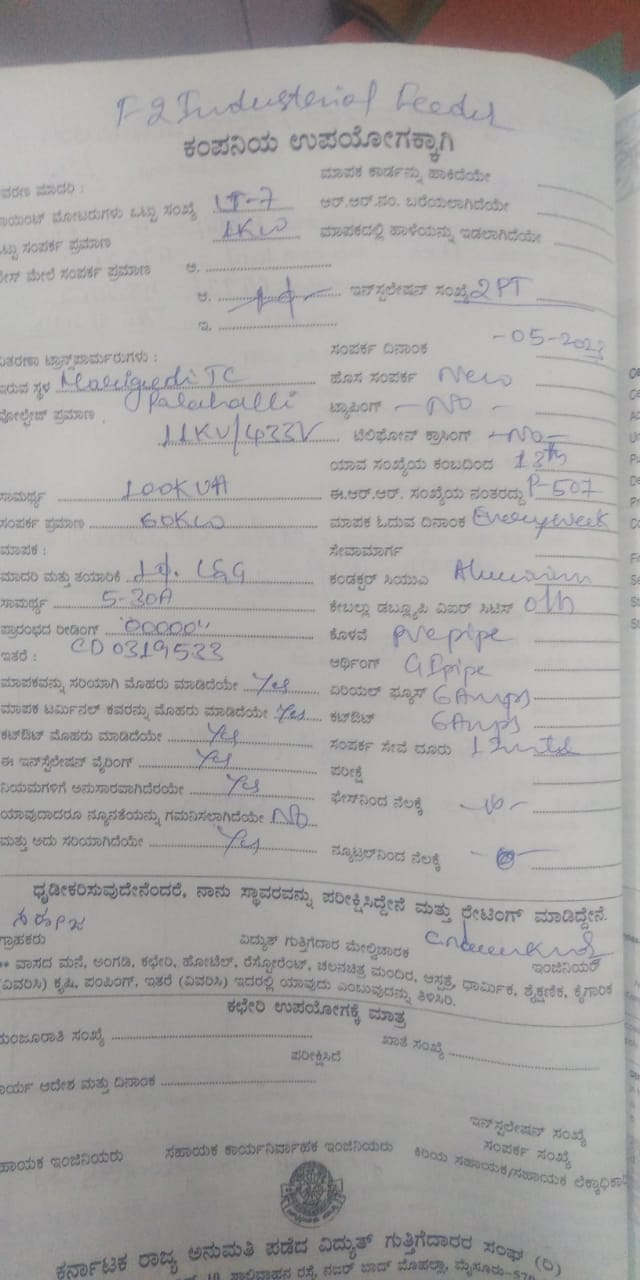 F-2 Industerial Feeder
ಕಂಪನಿಯ ಉಪಯೋಗಕ್ಕಾಗಿ
ಮಾಪಕ ಕಾರ್ಡನ್ನು ಹಾಕಿದೆಯೇ
ವರಣ ಮಾದರಿ :
ಆರ್.ಆರ್.ನಂ. ಬರೆಯಲಾಗಿದೆಯೇ
ಾಯಿಂಟ್ ಮೋಟರುಗಳು ಒಟ್ಟು ಸಂಖ್ಯೆ LT-7
ಟ್ಟು ಸಂಪರ್ಕ ಪ್ರಮಾಣ 1KW
ಮಾಪಕದಲ್ಲಿ ಹಾಳೆಯನ್ನು ಇಡಲಾಗಿದೆಯೇ
ೇಸ್ ಮೇಲೆ ಸಂಪರ್ಕ ಪ್ರಮಾಣ ಅ.
ಆ. 1ϕ ಇನ್‌ಸ್ಟಲೇಷನ್ ಸಂಖ್ಯೆ 2PT
ಇ.
ಸಂಪರ್ಕ ದಿನಾಂಕ -05-2022
ಿತರಣಾ ಟ್ರಾನ್ಸ್‌ಫಾರ್ಮರುಗಳು :
ಇರುವ ಸ್ಥಳ Marigudi TC Palahalli
ಹೊಸ ಸಂಪರ್ಕ New
ವೋಲ್ಟೇಜ್ ಪ್ರಮಾಣ 11KV/433V
ಟ್ಯಾಪಿಂಗ್ -NO-
ಟೆಲಿಫೋನ್ ಕ್ರಾಸಿಂಗ್ -NO-
ಯಾವ ಸಂಖ್ಯೆಯ ಕಂಬದಿಂದ 13th
ಸಾಮರ್ಥ್ಯ 100KVA
ಈ.ಆರ್.ಆರ್. ಸಂಖ್ಯೆಯ ನಂತರದ್ದು P-507
ಸಂಪರ್ಕ ಪ್ರಮಾಣ 60KW
ಮಾಪಕ ಓದುವ ದಿನಾಂಕ Every week
ಮಾಪಕ :
ಸೇವಾಮಾರ್ಗ
ಮಾದರಿ ಮತ್ತು ತಯಾರಿಕೆ 1ϕ. L&G
ಕಂಡಕ್ಟರ್ ಸಿಯುಎ
ಸಾಮರ್ಥ್ಯ 5-30A
ಕೇಬಲ್ಲು ಡಬ್ಲ್ಯೂಪಿ ವಿಐರ್ ಸಿಟಿಸ್
ಪ್ರಾರಂಭದ ರೀಡಿಂಗ್ "00000"
ಕೊಳವೆ PVC pipe
ಇತರೆ : CD 0319533
ಅರ್ಥಿಂಗ್ GI pipe
ಮಾಪಕವನ್ನು ಸರಿಯಾಗಿ ಮೊಹರು ಮಾಡಿದೆಯೇ Yes
ಏರಿಯಲ್ ಫ್ಯೂಸ್ 6Amps
ಮಾಪಕ ಟರ್ಮಿನಲ್ ಕವರನ್ನು ಮೊಹರು ಮಾಡಿದೆಯೇ Yes
ಕಟ್‌ಔಟ್ 6Amps
ಕಟ್‌ಔಟ್ ಮೊಹರು ಮಾಡಿದೆಯೇ Yes
ಸಂಪರ್ಕ ಸೇವೆ ದೂರು
ಈ ಇನ್‌ಸ್ಟಲೇಷನ್ ವೈರಿಂಗ್ Yes
ಪರೀಕ್ಷೆ
ನಿಯಮಗಳಿಗೆ ಅನುಸಾರವಾಗಿದೆಯೇ Yes
ಫೇಸ್‌ನಿಂದ ನೆಲಕ್ಕೆ
ಯಾವುದಾದರೂ ನ್ಯೂನತೆಯನ್ನು ಗಮನಿಸಲಾಗಿದೆಯೇ No
ಮತ್ತು ಅದು ಸರಿಯಾಗಿದೆಯೇ Yes
ನ್ಯೂಟ್ರಲ್‌ನಿಂದ ನೆಲಕ್ಕೆ
ಧೃಡೀಕರಿಸುವುದೇನೆಂದರೆ, ನಾನು ಸ್ಥಾವರವನ್ನು ಪರೀಕ್ಷಿಸಿದ್ದೇನೆ ಮತ್ತು ರೇಟಿಂಗ್ ಮಾಡಿದ್ದೇನೆ.
ಗ್ರಾಹಕರು ವಿದ್ಯುತ್ ಗುತ್ತಿಗೆದಾರ ಮೇಲ್ವಿಚಾರಕ ಇಂಜಿನಿಯರ್
** ವಾಸದ ಮನೆ, ಅಂಗಡಿ, ಕಛೇರಿ, ಹೋಟೆಲ್, ರೆಸ್ಟೋರೆಂಟ್, ಚಲನಚಿತ್ರ ಮಂದಿರ, ಆಸ್ಪತ್ರೆ, ಧಾರ್ಮಿಕ, ಶೈಕ್ಷಣಿಕ, ಕೈಗಾರಿಕ
(ವಿವರಿಸಿ) ಕೃಷಿ, ಪಂಪಿಂಗ್, ಇತರೆ (ವಿವರಿಸಿ) ಇದರಲ್ಲಿ ಯಾವುದು ಎಂಬುವುದನ್ನು ತಿಳಿಸಿರಿ.
ಕಛೇರಿ ಉಪಯೋಗಕ್ಕೆ ಮಾತ್ರ
ಮಂಜೂರಾತಿ ಸಂಖ್ಯೆ ಖಾತೆ ಸಂಖ್ಯೆ
ಪರೀಕ್ಷಿಸಿದೆ
ಾರ್ಯ ಆದೇಶ ಮತ್ತು ದಿನಾಂಕ
ಇನ್‌ಸ್ಟಲೇಷನ್ ಸಂಖ್ಯೆ
ಸಂಪರ್ಕ ಸಂಖ್ಯೆ
ಹಾಯಕ ಇಂಜಿನಿಯರು ಸಹಾಯಕ ಕಾರ್ಯನಿರ್ವಾಹಕ ಇಂಜಿನಿಯರು ಕಿರಿಯ ಸಹಾಯಕ/ಸಹಾಯಕ ಲೆಕ್ಕಾಧಿಕಾ
ಕರ್ನಾಟಕ ರಾಜ್ಯ ಅನುಮತಿ ಪಡೆದ ವಿದ್ಯುತ್ ಗುತ್ತಿಗೆದಾರರ ಸಂಘ (ರಿ)
10, ಶಾಲಿವಾಹನ ರಸ್ತೆ, ನಜರ್ ಬಾದ್ ಮೊಹಲ್ಲಾ, ಮೈಸೂರು-570